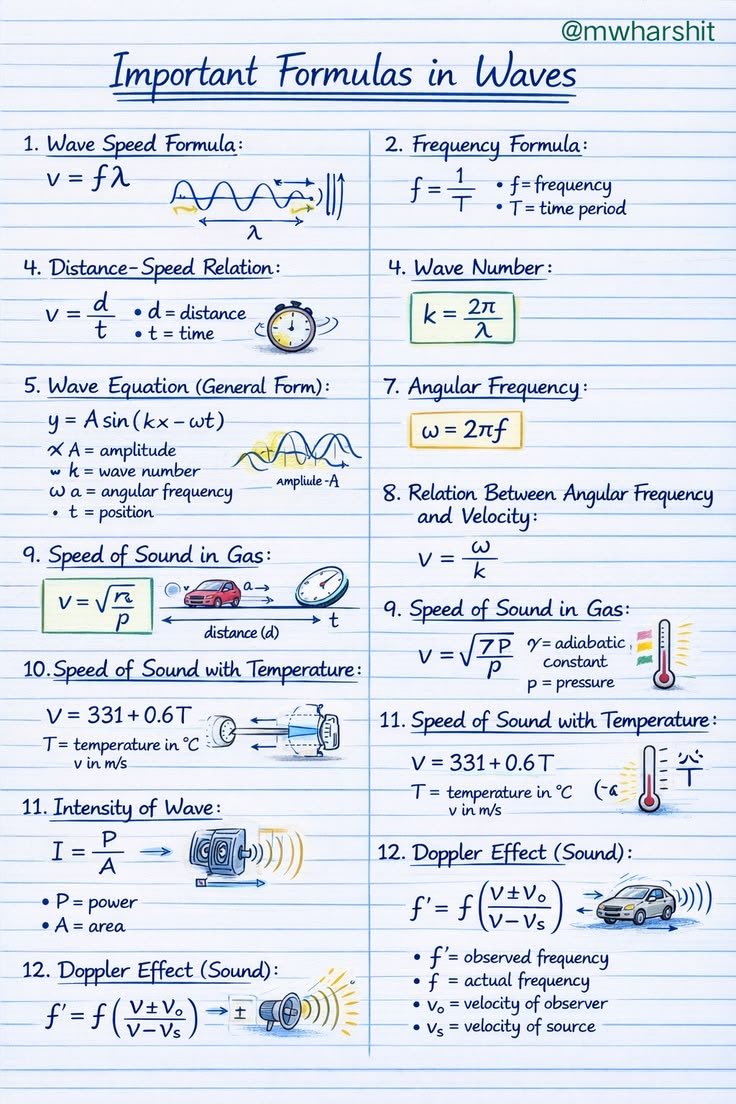 @mwharshit
Important Formulas in Waves
1. Wave Speed Formula:
v = fλ
λ
2. Frequency Formula:
f = 1/T
• f = frequency
• T = time period
4. Distance-Speed Relation:
v = d/t
• d = distance
• t = time
4. Wave Number:
k = 2π/λ
5. Wave Equation (General Form):
y = A sin (kx − ωt)
x A = amplitude
w k = wave number
ω a = angular frequency
• t = position
ampliule -A
7. Angular Frequency:
ω = 2πf
8. Relation Between Angular Frequency
and Velocity:
v = ω/k
9. Speed of Sound in Gas:
v a→
distance (d)
t
9. Speed of Sound in Gas:
v = √7P/p
γ = adiabatic
constant
p = pressure
10. Speed of Sound with Temperature:
V = 331 + 0.6T
T = temperature in °C
v in m/s
11. Speed of Sound with Temperature:
V = 331 + 0.6T
T = temperature in °C
v in m/s
11. Intensity of Wave:
I = P/A →
• P = power
• A = area
12. Doppler Effect (Sound):
f' = f (V ± Vo / V − Vs)
• f' = observed frequency
• f = actual frequency
• vo = velocity of observer
• vs = velocity of source
12. Doppler Effect (Sound):
f' = f (V ± Vo / V − Vs) → ±